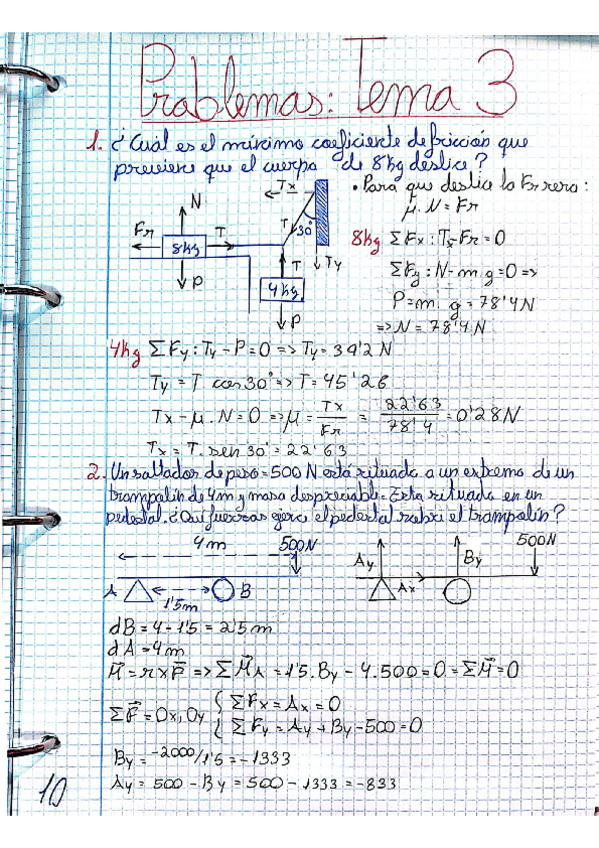 Problemas: Tema 3
1. ¿Cuál es el mínimo coeficiente de fricción que
previene que el cuerpo de 8kg deslice?
Tx
• Para que deslice la Fr será:
μ·N = Fr
N
Fr
8kg
T
T
30°
8kg ΣFx: Tx-Fr = 0
T
Ty
ΣFy: N-m.g=0 =>
4kg
P
P=m.g = 78'4N
P
=> N = 78'4N
4kg ΣFy: Ty-P=0 => Ty=39'2 N
Ty = T cos30° => T=45'26
Tx-μ.N=0 => μ= Tx/Fr = 22'63/78'4 = 0'28N
Tx = T.sen 30° = 22'63
2. Un saltador de peso=500 N está situado a un extremo de un
trampolín de 4m y masa despreciable. Esta situada en un
pedestal. ¿Qué fuerzas ejerce el pedestal sobre el trampolín?
4m
500N
Ay
By
500N
A
B
Ax
1'5m
dB = 4-1'5 = 2'5m
dA = 4m
M = r x F => ΣMA = 1'5.By - 4.500 = 0 = ΣM = 0
ΣF = Ox, Oy { ΣFx = Ax = 0
ΣFy = Ay + By - 500 = 0
By = -2000/1'5 = -1333
Ay = 500 - By = 500 - 1333 = -833
10